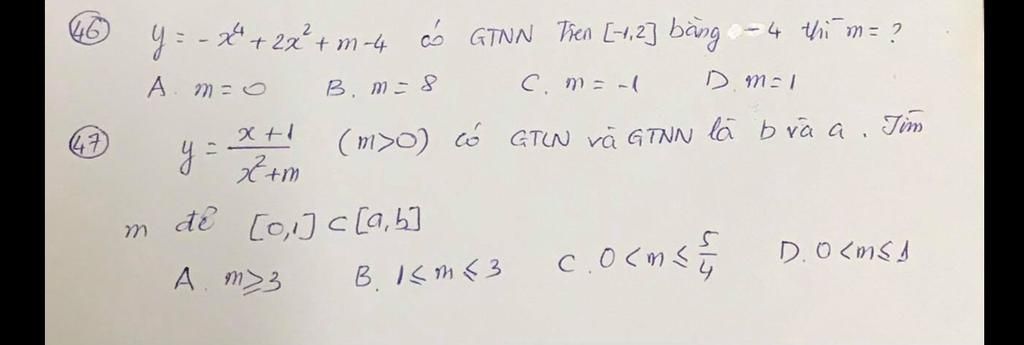 46 y = -x⁴ + 2x² + m - 4 có GTNN Trên [-1,2] bằng - 4 thì m = ?
A. m = 0 B. m = 8 C. m = -1 D. m = 1
47 y = (x+1)/(x²+m) (m>0) có GTLN và GTNN là b và a. Tìm
m để [0,1] ⊂ [a,b]
A. m ⩾ 3 B. 1 ⩽ m ⩽ 3 C. 0 < m ⩽ 5/4 D. 0 < m ⩽ 1